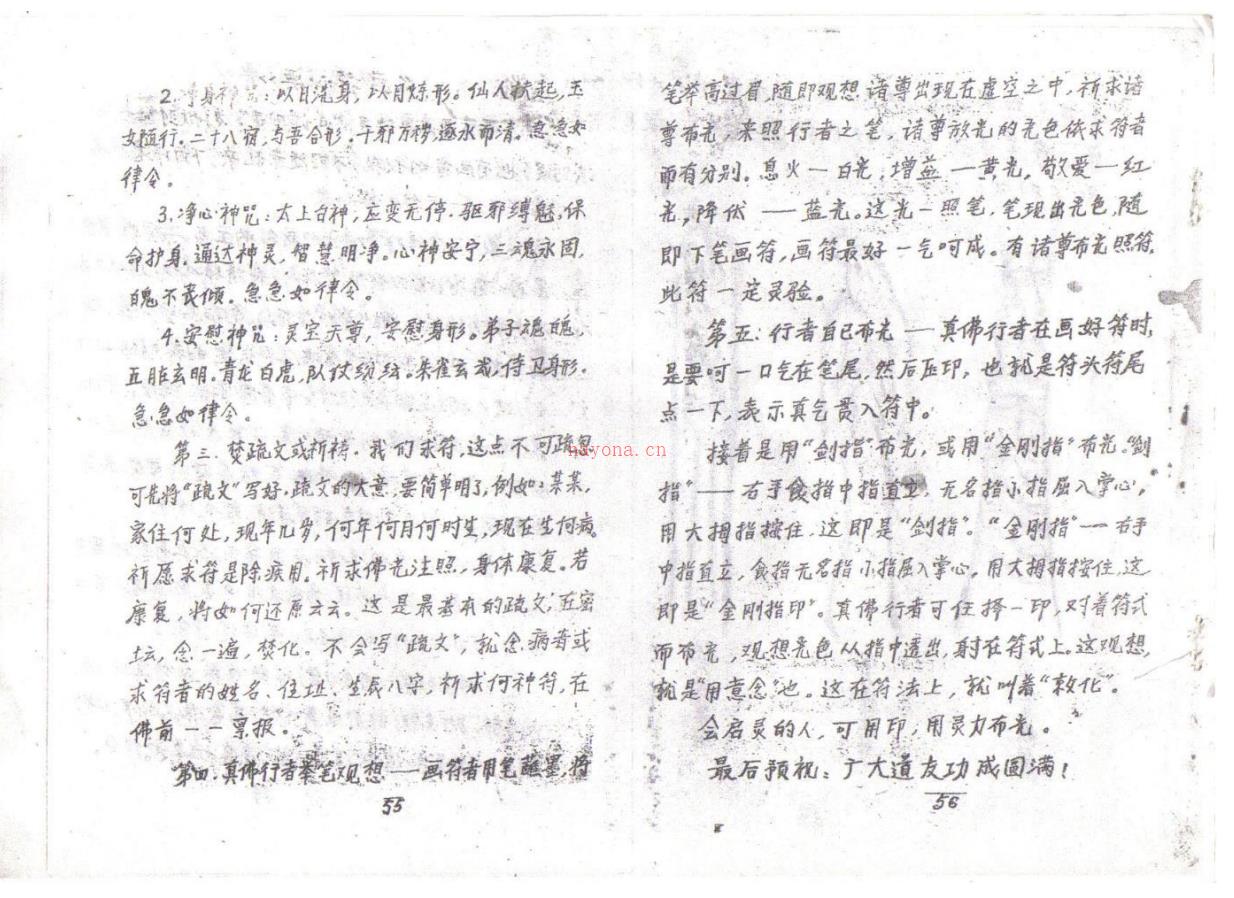 2. 净身神咒: 以日洗身, 以月炼形。仙人扶起, 玉
女随行。二十八宿, 与吾合形。千邪万秽, 逐水而清。急急如
律令。
3. 净心神咒: 太上台神, 应变无停。驱邪缚魅, 保
命护身。通达神灵, 智慧明净。心神安宁, 三魂永固,
魄不丧倾。急急如律令。
4. 安慰神咒: 灵宝天尊, 安慰身形。弟子魂魄,
五脏玄明。青龙白虎, 队仗纷纭。朱雀玄武, 侍卫身形。
急急如律令。
第三. 焚疏文或祈祷. 我们求符, 这点不可疏忽
可先将“疏文”写好, 疏文的大意, 要简单明了, 例如: 某某,
家住何处, 现年几岁, 何年何月何时生, 现在生何病。
祈愿求符是除疾用。祈求佛光注照, 身体康复。若
康复, 将如何还原云云。这是最基本的疏文, 在密
坛, 念一遍, 焚化。不会写“疏文”, 就念病者或
求符者的姓名、住址、生辰八字, 祈求何神符, 在
佛前一一禀报。
第四. 真佛行者举笔观想——画符者用笔蘸墨, 将
55
笔举高过眉, 随即观想诸尊出现在虚空之中, 祈求诸
尊布光, 来照行者之笔, 诸尊放光的光色依求符者
而有分别。息火—白光, 增益—黄光, 敬爱—红
光, 降伏——蓝光。这光一照笔, 笔现出光色, 随
即下笔画符, 画符最好一气呵成。有诸尊布光照符,
此符一定灵验。
第五: 行者自己布光——真佛行者在画好符时,
是要呵一口气在笔尾, 然后压印, 也就是符头符尾
点一下, 表示真气贯入符中。
接着是用“剑指”布光, 或用“金刚指”布光。“剑
指”——右手食指中指直立, 无名指小指屈入掌心,
用大拇指按住, 这即是“剑指”。“金刚指”——右手
中指直立, 食指无名指小指屈入掌心, 用大拇指按住, 这
即是“金刚指印”。真佛行者可任择一印, 对着符式
而布光, 观想光色从指中透出, 射在符式上。这观想,
就是“用意念”也。这在符法上, 就叫着“敕化”。
会启灵的人, 可用印, 用灵力布光。
最后预祝: 广大道友功成圆满!
56
nayona.cn